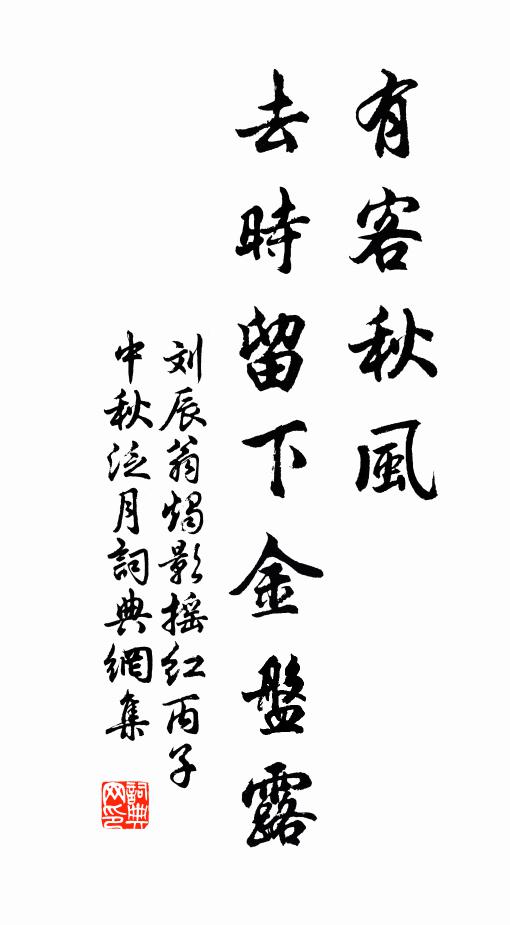 有客秋風
去時留下金盤露
刘辰翁燭影摇红丙子
中秋泛月詞典網集
詞典网印